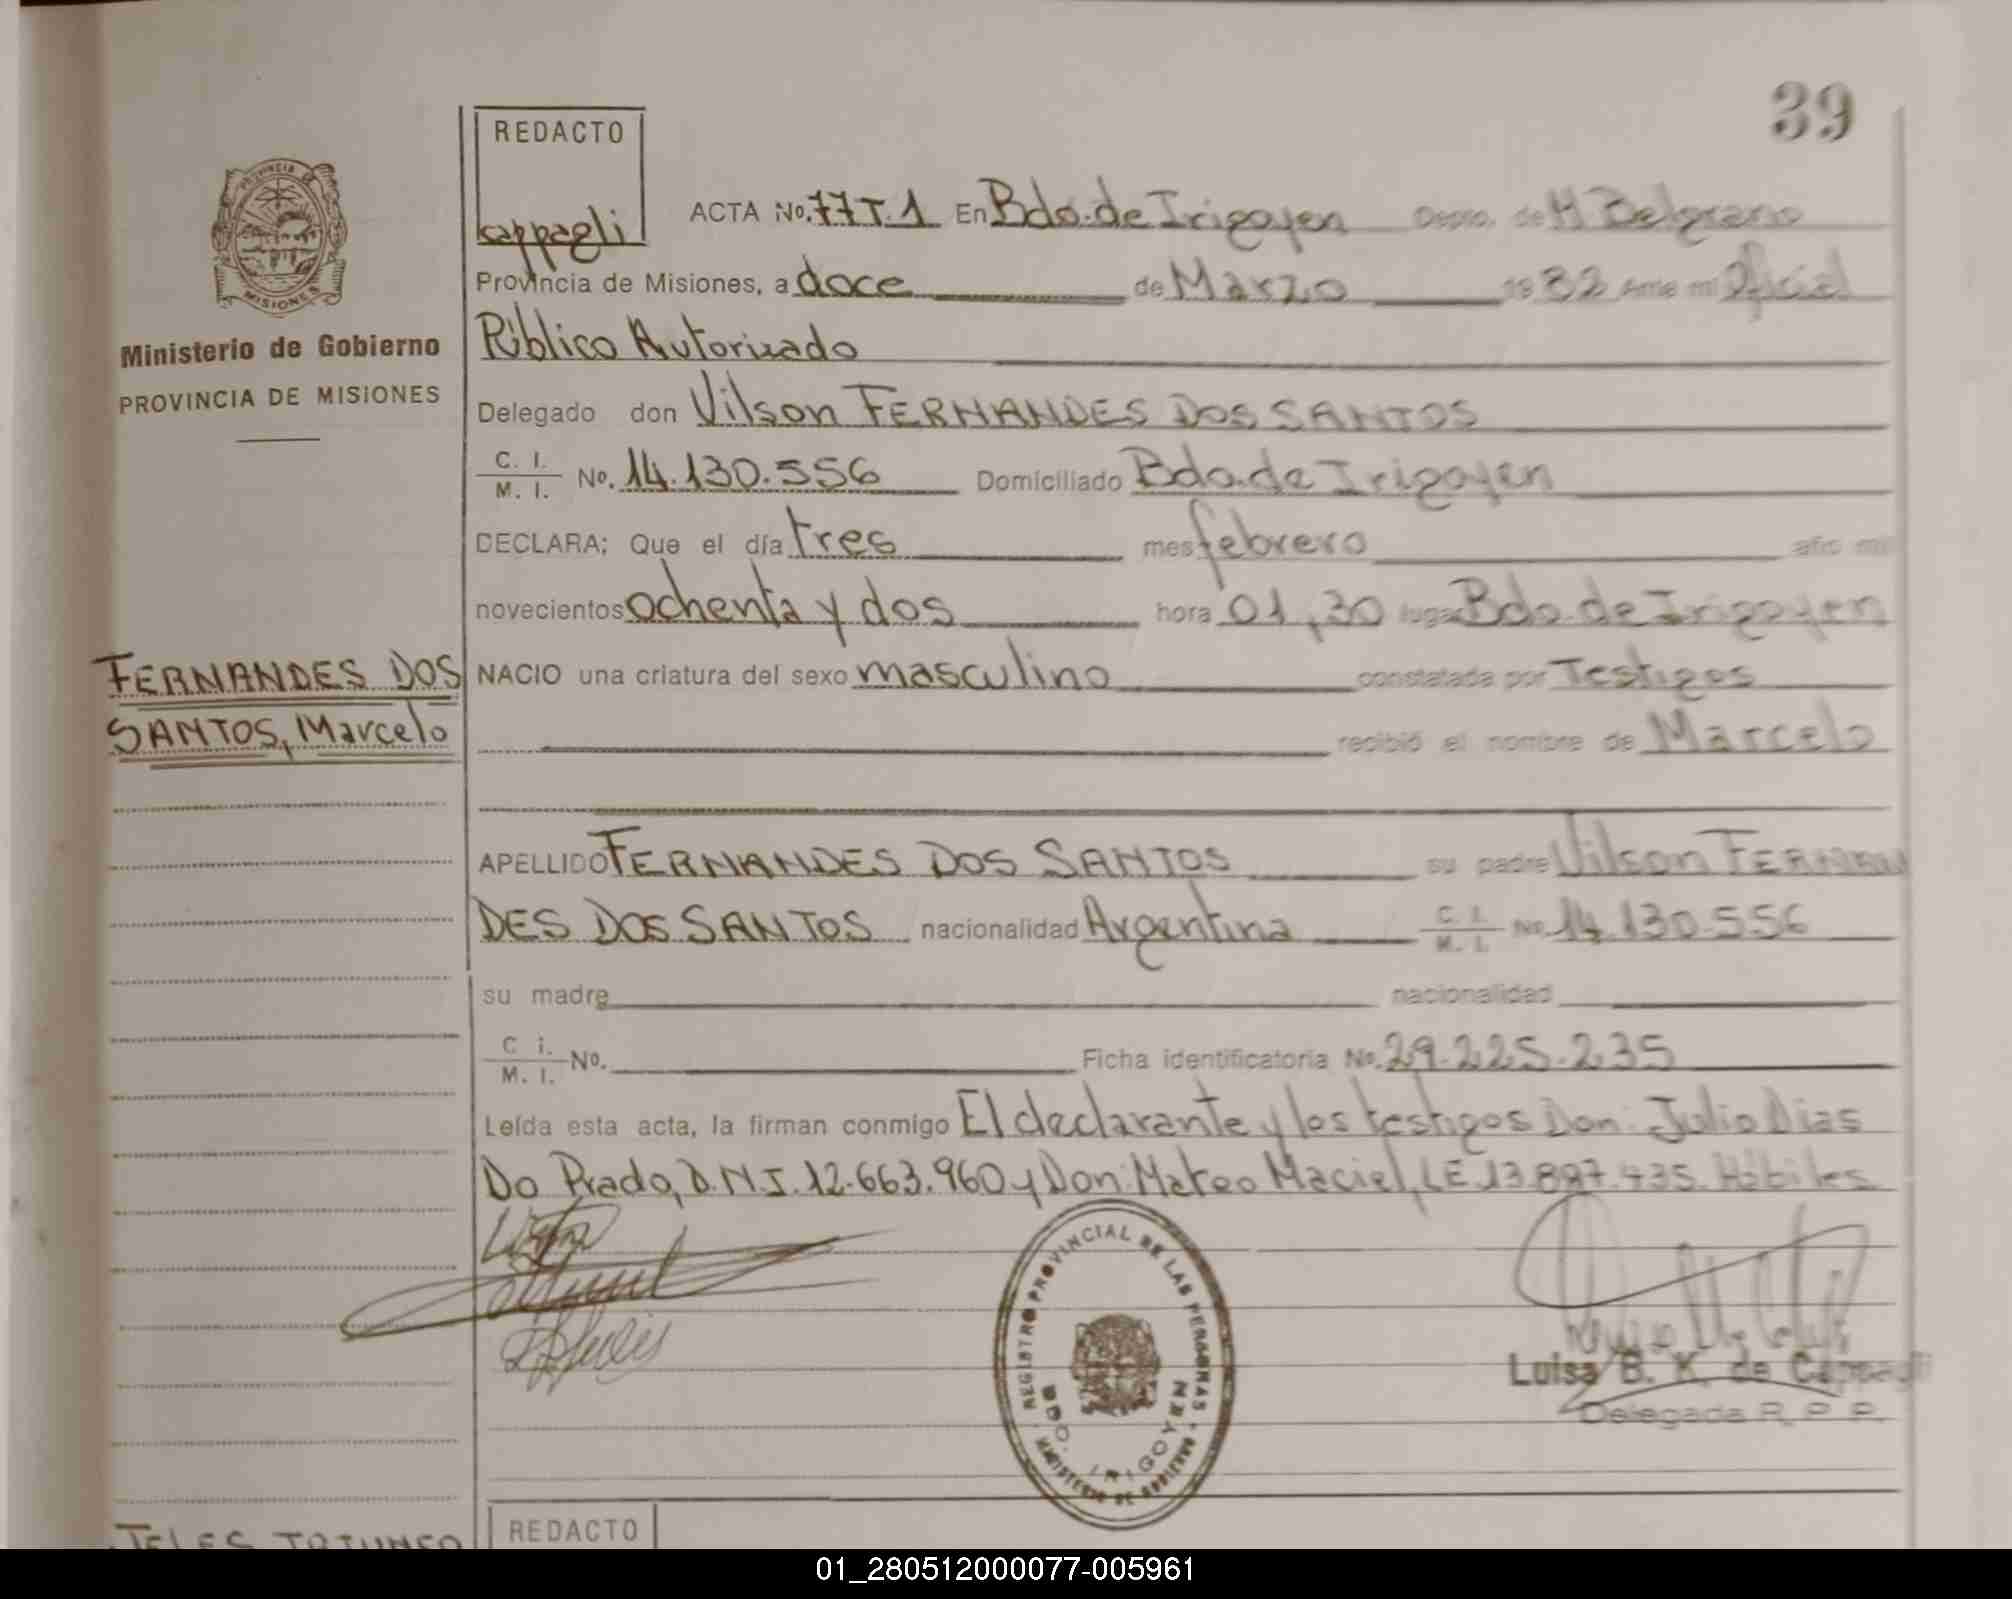 39
REDACTO
cappagli
PROVINCIA DE
MISIONES
Ministerio de Gobierno
PROVINCIA DE MISIONES
ACTA No. 77 T.1 En Bdo. de Irigoyen Depto. de M Belgrano
Provincia de Misiones, a doce de Marzo 1982 Ante mi Oficial
Público Autorizado
Delegado don Vilson FERNANDES DOS SANTOS
C. I. / M. I. No. 14.130.556 Domiciliado Bdo. de Irigoyen
DECLARA: Que el día tres mes febrero año mil
novecientos ochenta y dos hora 01,30 lugar Bdo. de Irigoyen
FERNANDES DOS
SANTOS, Marcelo
NACIO una criatura del sexo masculino constatada por Testigos
recibió el nombre de Marcelo
APELLIDO FERNANDES DOS SANTOS su padre Vilson FERNAN
DES DOS SANTOS nacionalidad Argentina C. I. / M. I. No. 14.130.556
su madre nacionalidad
C i. / M. I. No. Ficha identificatoria No. 29.225.235
Leída esta acta, la firman conmigo El declarante y los testigos Don: Julio Dias
Do Prado, D.N.I. 12.663.960 y Don: Mateo Maciel, LE 13.897.435. Hábiles
REGISTRO PROVINCIAL DE LAS PERSONAS
BDO. IRIGOYEN
MINISTERIO DE GOBIERNO
Luisa B. K. de Cappagli
Delegada R. P. P.
REDACTO
01_280512000077-005961